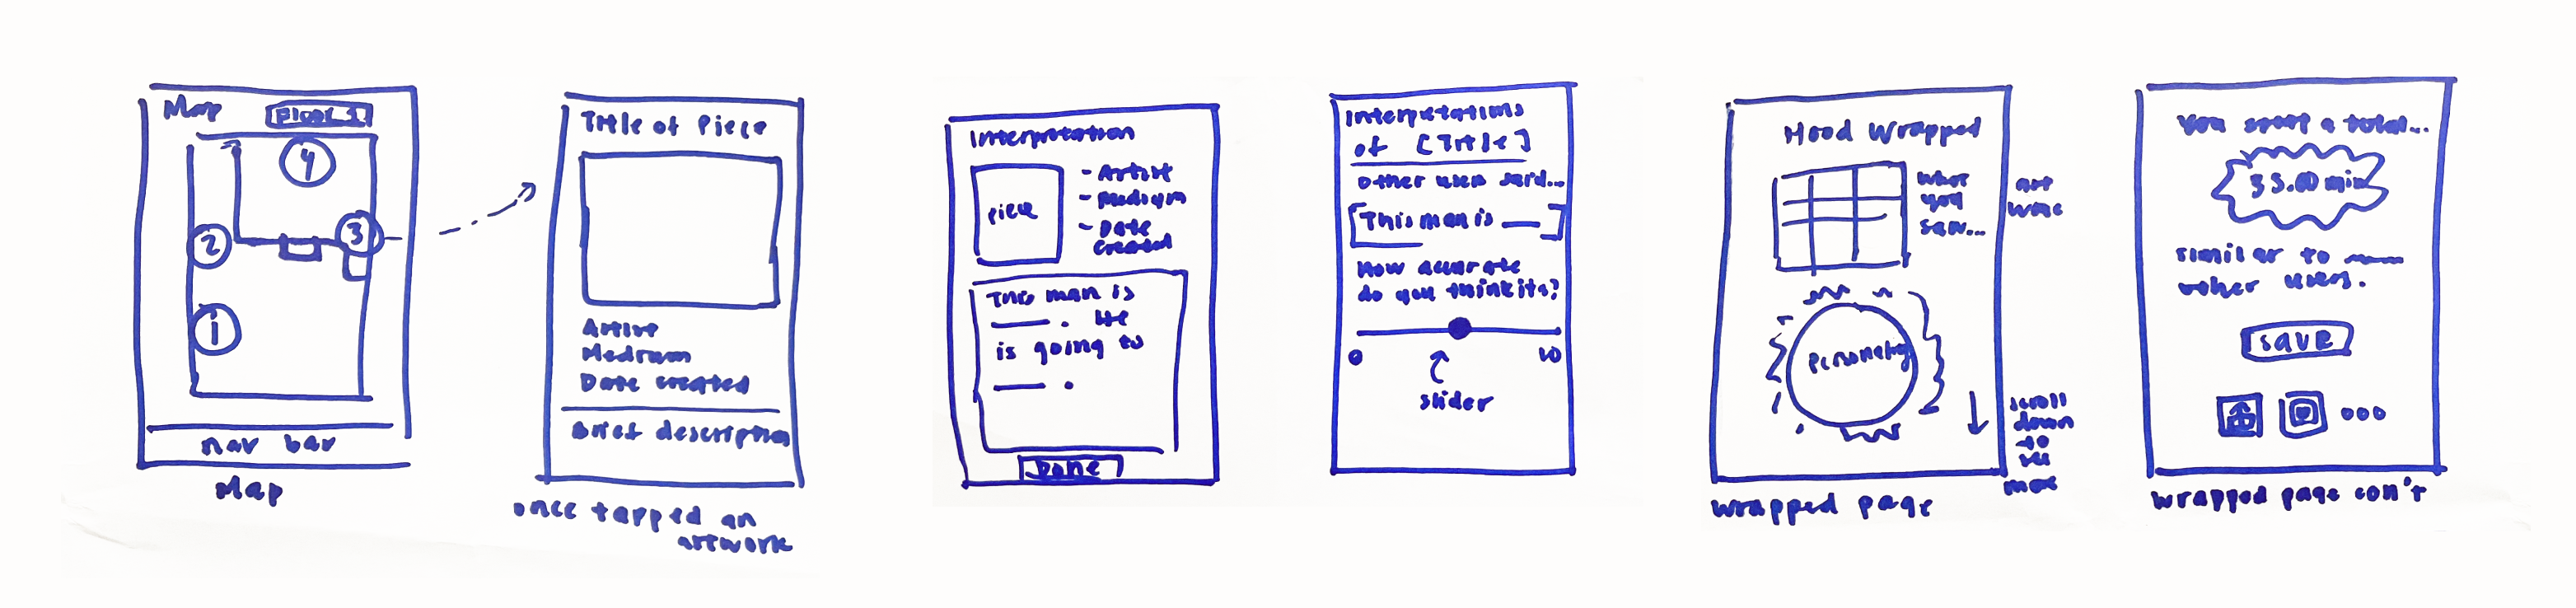 Map
Floor 1
4
2
3
1
nav bar
Map
Title of Piece
Artist
Medium
Date created
Brief description
once tapped an
artwork
Interpretation
piece
- Artist
- Medium
- Date
created
This man is
___ . He
is going to
___ .
Done
Interpretations
of [Title]
other users said...
[This man is ___]
How accurate
do you think its?
0
10
slider
Hood Wrapped
what
you
saw...
art
work
Personality
scroll
down
to
see
more
wrapped page
You spent a total...
35.00 min
similar to ___
other users.
SAVE
wrapped page con't